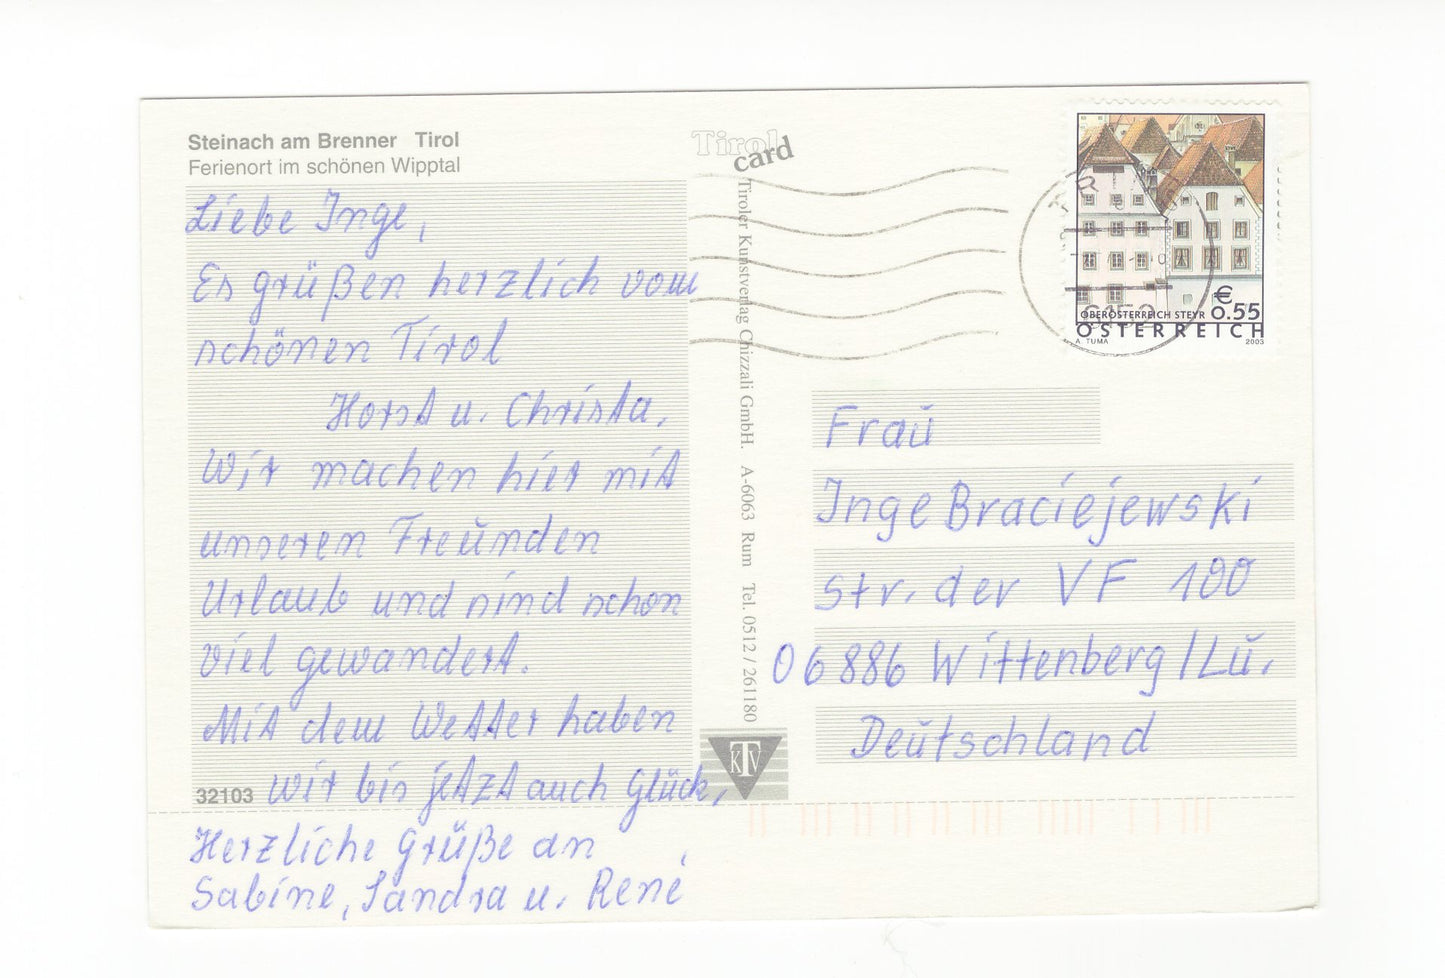 Steinach am Brenner Tirol
Ferienort im schönen Wipptal
Liebe Inge,
Es grüßen herzlich vom
schönen Tirol
Horst u. Christa.
Wir machen hier mit
unseren Freunden
Urlaub und sind schon
viel gewandert.
Mit dem Wetter haben
32103 wir bis jetzt auch Glück,
Herzliche Grüße an
Sabine, Sandra u. René
Tirol
card
Tiroler Kunstverlag Chizzali GmbH. A-6063 Rum Tel. 0512 / 261180
KTV
€
OBERÖSTERREICH STEYR 0.55
ÖSTERREICH
A. TUMA 2003
Frau
Inge Braciejewski
Str. der VF 100
06886 Wittenberg/Lu.
Deutschland